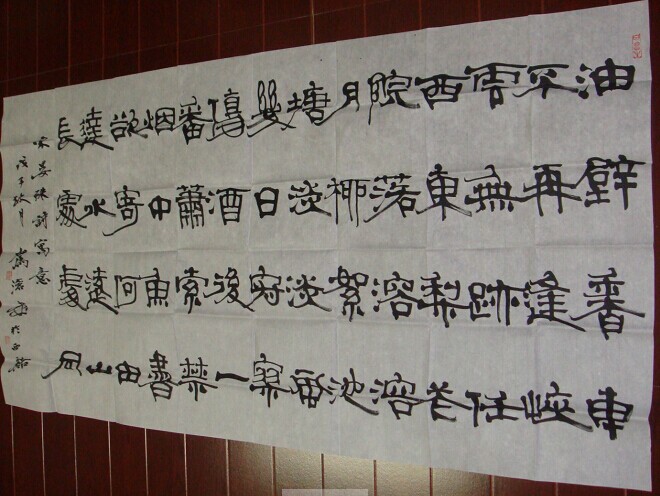 油壁香車
不再逢峽
雲無跡任
西東梨花
院落溶溶
月柳絮池
塘淡淡風
幾日寂寥
傷酒後一
番蕭索禁
烟中魚書
欲寄何由
達水遠山
長處處同
宋晏殊詩寓意
戊子秋月